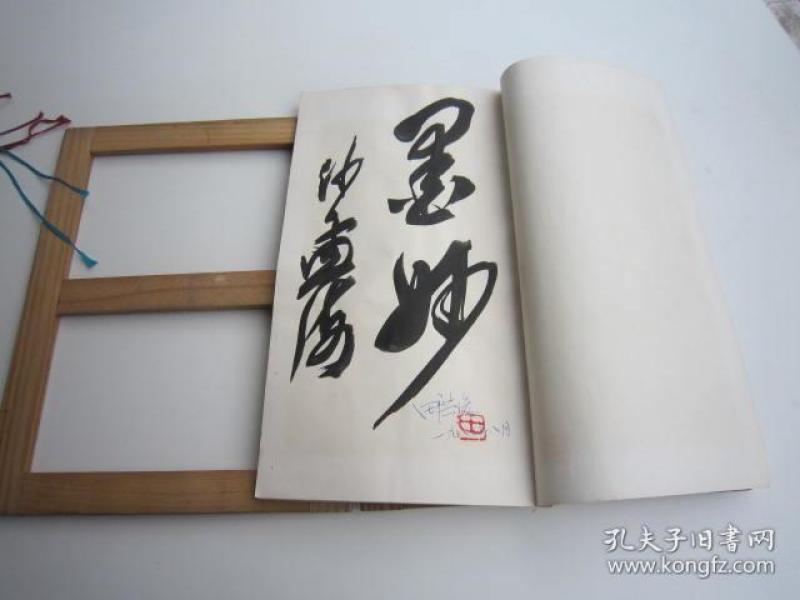 墨妙
沙孟海
田
八月
孔夫子旧書网
www.kongfz.com